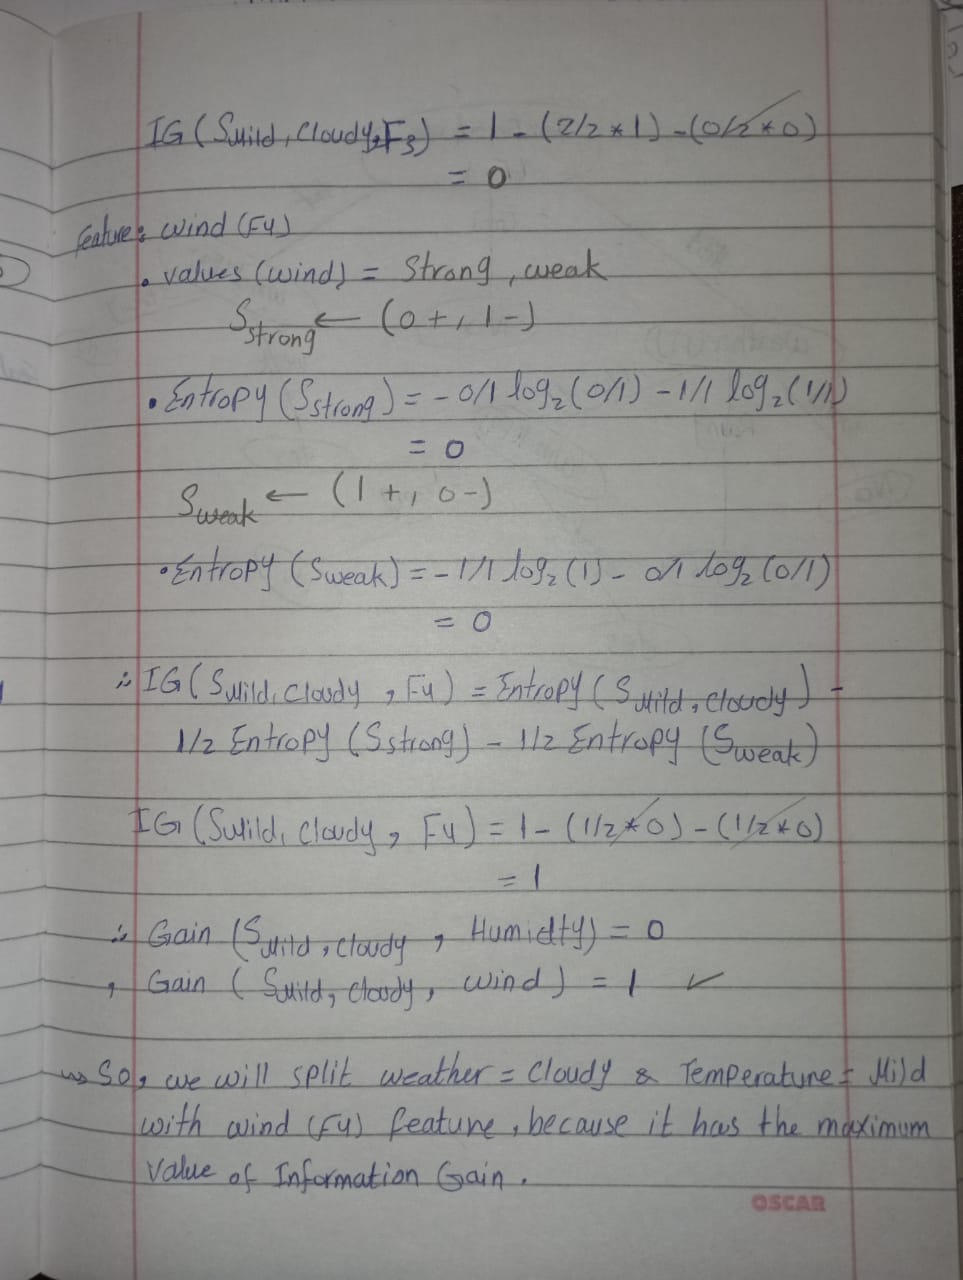 IG(SMild, Cloudy, F3) = 1 - (2/2 * 1) - (0/2 * 0)
= 0
feature: wind (F4)
• values (wind) = Strong, weak
SStrong ← (0+, 1-)
• Entropy (Sstrong) = - 0/1 log2 (0/1) - 1/1 log2 (1/1)
= 0
Sweak ← (1+, 0-)
• Entropy (Sweak) = - 1/1 log2 (1) - 0/1 log2 (0/1)
= 0
∴ IG (SMild, Cloudy, F4) = Entropy (SMild, cloudy) -
1/2 Entropy (Sstrong) - 1/2 Entropy (Sweak)
IG (SMild, Cloudy, F4) = 1 - (1/2 * 0) - (1/2 * 0)
= 1
∴ Gain (SMild, cloudy, Humidty) = 0
, Gain (SMild, cloudy, wind) = 1 ✓
⇒ So, we will split weather = Cloudy & Temperature = Mild
with wind (F4) feature, because it has the maximum
value of Information Gain.
OSCAR